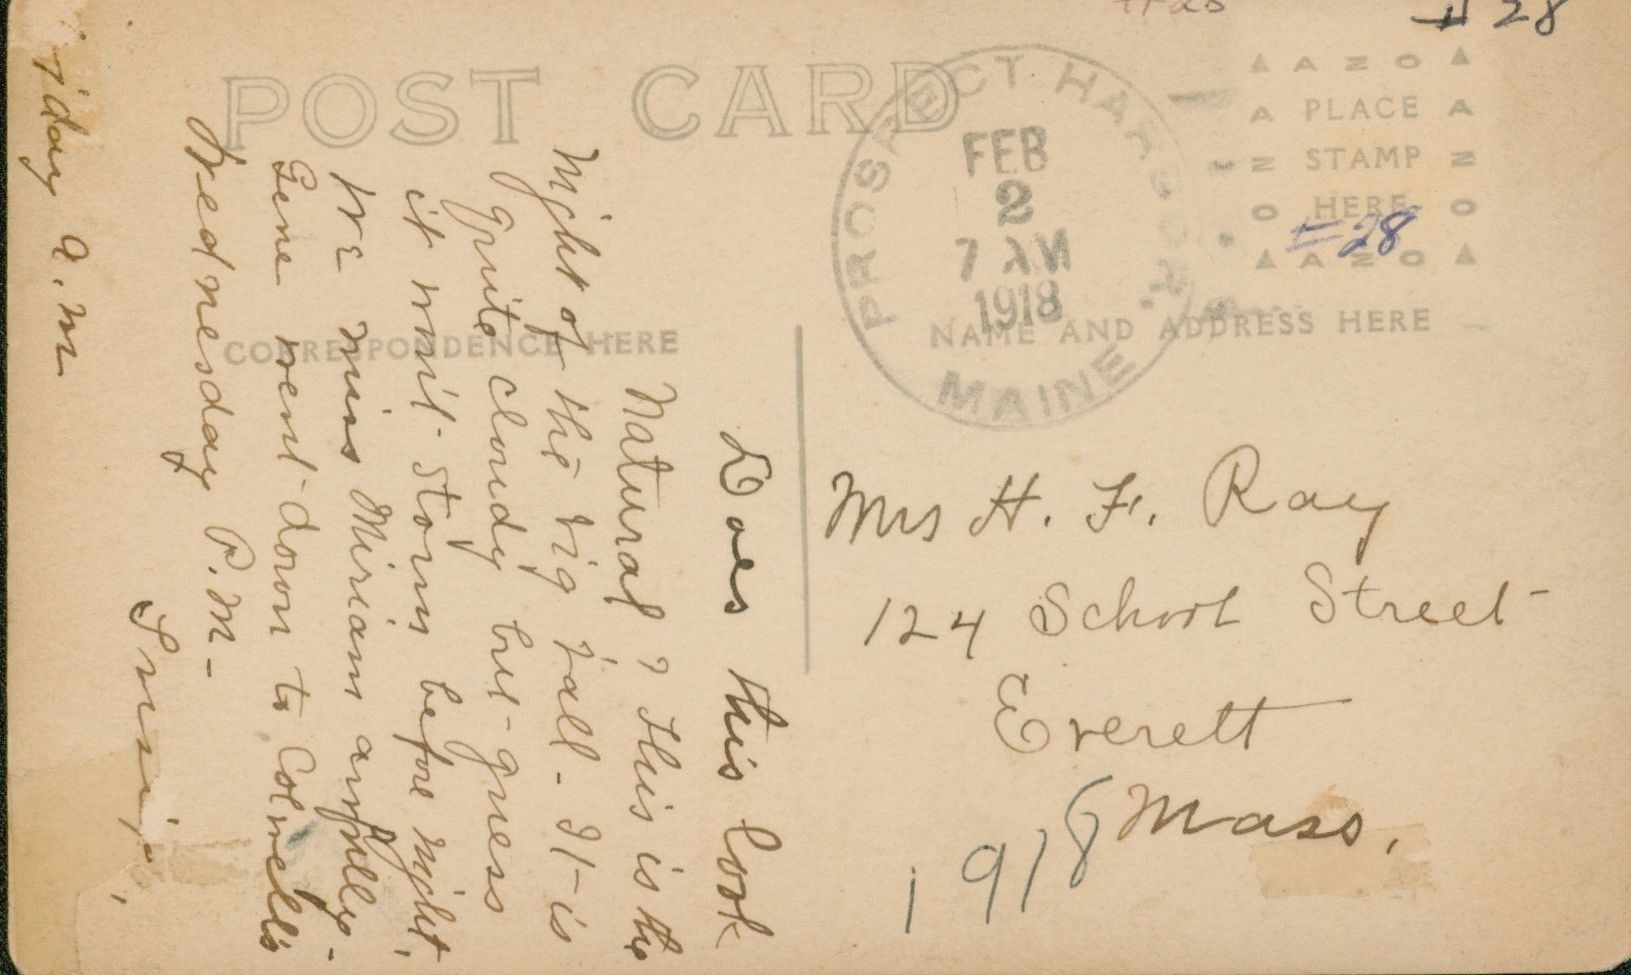 # 28
POST CARD
CORRESPONDENCE HERE
AZO
PLACE
STAMP
HERE
AZO
#28
NAME AND ADDRESS HERE
PROSPECT HARBOR.
MAINE
FEB
2
7 AM
1918
Mrs H. F. Ray
124 School Street
Everett
Mass.
1918
Does this look
Natural? This is the
Night of the big fall. It is
quite cloudy but guess
it will storm before night.
We miss Miriam awfully.
Gene went down to Colwell's
Wednesday P.M.
Susie.
iday A.M